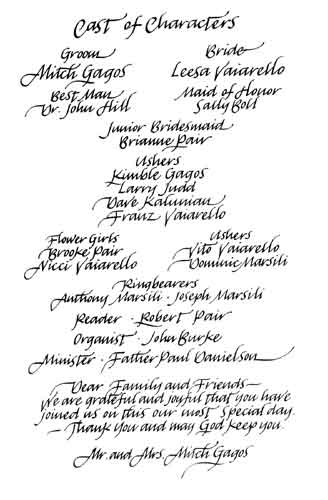 Cast of Characters
Groom
Mitch Gagos
Bride
Leesa Vaiarello
Best Man
Dr. John Hill
Maid of Honor
Sally Boll
Junior Bridesmaid
Brianne Pair
Ushers
Kimble Gagos
Larry Judd
Dave Kalunian
Franz Vaiarello
Flower Girls
Brooke Pair
Nicci Vaiarello
Ushers
Vito Vaiarello
Dominic Marsili
Ringbearers
Anthony Marsili · Joseph Marsili
Reader · Robert Pair
Organist · John Burke
Minister · Father Paul Danielson
Dear Family and Friends—
We are grateful and joyful that you have
joined us on this our most special day.
— Thank you and may God keep you.
Mr. and Mrs. Mitch Gagos